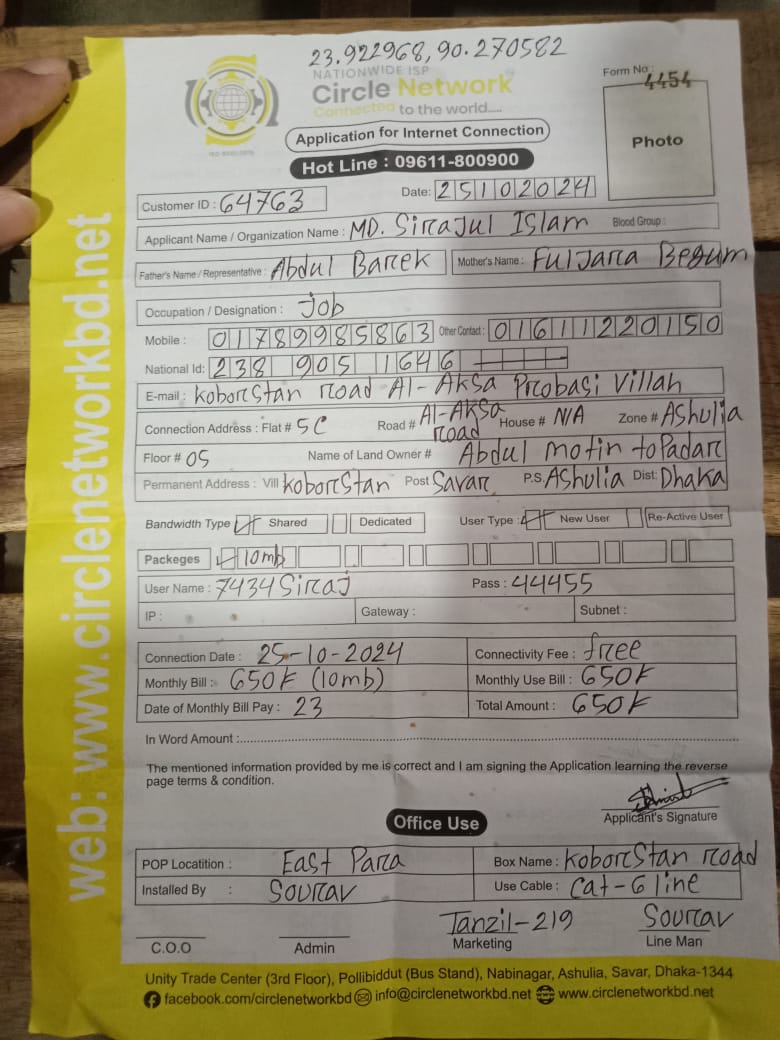 23.922968, 90.270582
NATIONWIDE ISP
Circle Network
Connected to the world....
ISO 9001:2015
Form No :
4454
Photo
Application for Internet Connection
Hot Line : 09611-800900
Customer ID : 64763
Date: 25102024
Applicant Name / Organization Name : MD. Sirajul Islam Blood Group :
Father's Name / Representative : Abdul Barek Mother's Name : Fuljara Begum
Occupation / Designation : Job
Mobile : 01789985863 Other Contact : 01611220150
National Id: 238 905 1646
E-mail : koborstan road Al-Aksa Probasi Villah
Connection Address : Flat # 5C Road # Al-Aksa road House # N/A Zone # Ashulia
Floor # 05 Name of Land Owner # Abdul motin toPadar
Permanent Address : Vill koborstan Post Savar P.S. Ashulia Dist: Dhaka
Bandwidth Type Shared Dedicated User Type : New User Re-Active User
Packeges 10mb
User Name : 7434Siraj Pass : 44455
IP : Gateway : Subnet :
Connection Date : 25-10-2024 Connectivity Fee : free
Monthly Bill : 650৳ (10mb) Monthly Use Bill : 650৳
Date of Monthly Bill Pay : 23 Total Amount : 650৳
In Word Amount :
The mentioned information provided by me is correct and I am signing the Application learning the reverse
page terms & condition.
Applicant's Signature
Office Use
POP Locatition : East Para Box Name : koborstan road
Installed By : Sourav Use Cable : Cat-6 line
Tanzil-219 Sourav
C.O.O Admin Marketing Line Man
Unity Trade Center (3rd Floor), Pollibiddut (Bus Stand), Nabinagar, Ashulia, Savar, Dhaka-1344
facebook.com/circlenetworkbd info@circlenetworkbd.net www.circlenetworkbd.net
web: www.circlenetworkbd.net